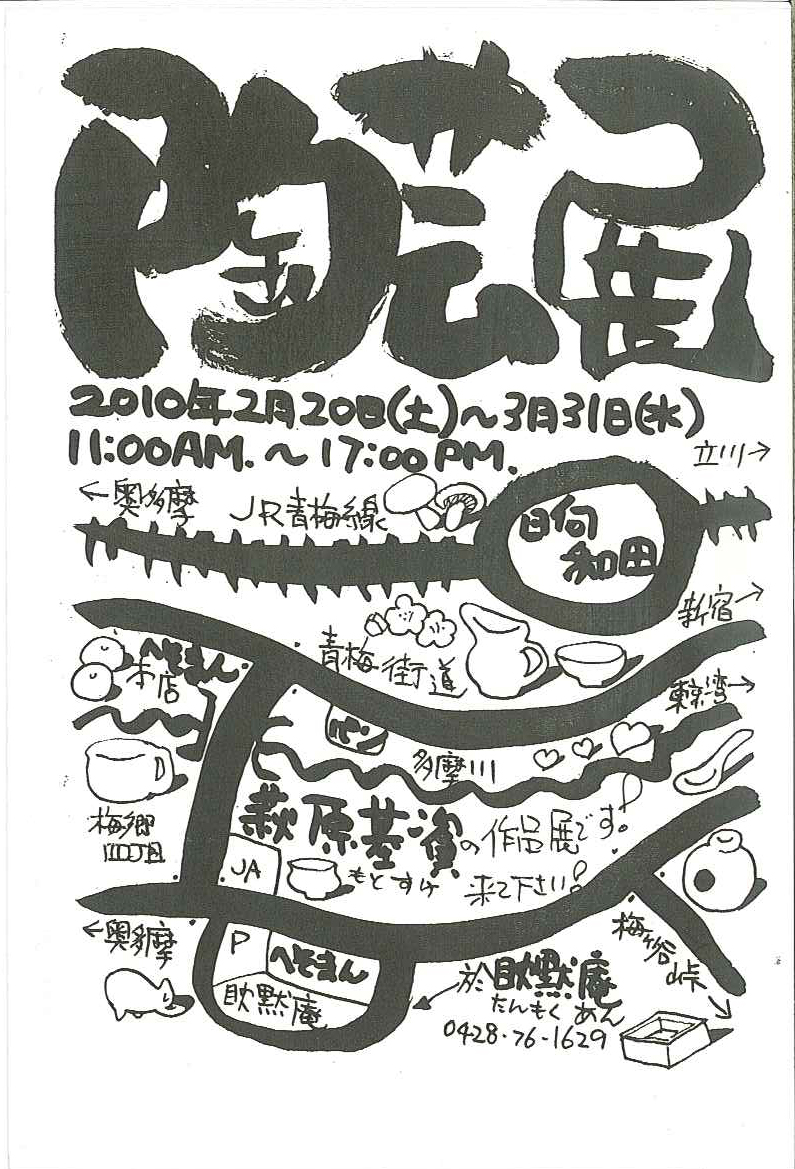 陶芸展
2010年2月20日(土)～3月31日(水)
11:00AM.～17:00PM.
立川→
←奥多摩
JR青梅線
日向
和田
新宿→
青梅街道
へそまん
本店
東京湾→
パン
多摩川
梅郷
四丁目
萩原基演の作品展です!
もとすけ
来て下さい!
JA
←奥多摩
P
へそまん
黙庵
梅ヶ谷
峠
於 黙庵
たんもくあん
0428-76-1629